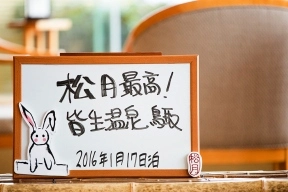 松月最高!
皆生温泉 鳥取
2016年1月17日泊
松月